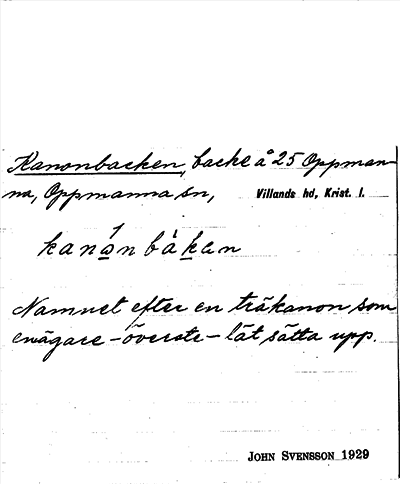 Kanonbacken, backe å 25 Oppman-
na, Oppmanna sn, Villands hd, Krist. l.
kanó̱nbàḵen
Namnet efter en träkanon som
en ägare – överste – lät sätta upp.
JOHN SVENSSON 1929